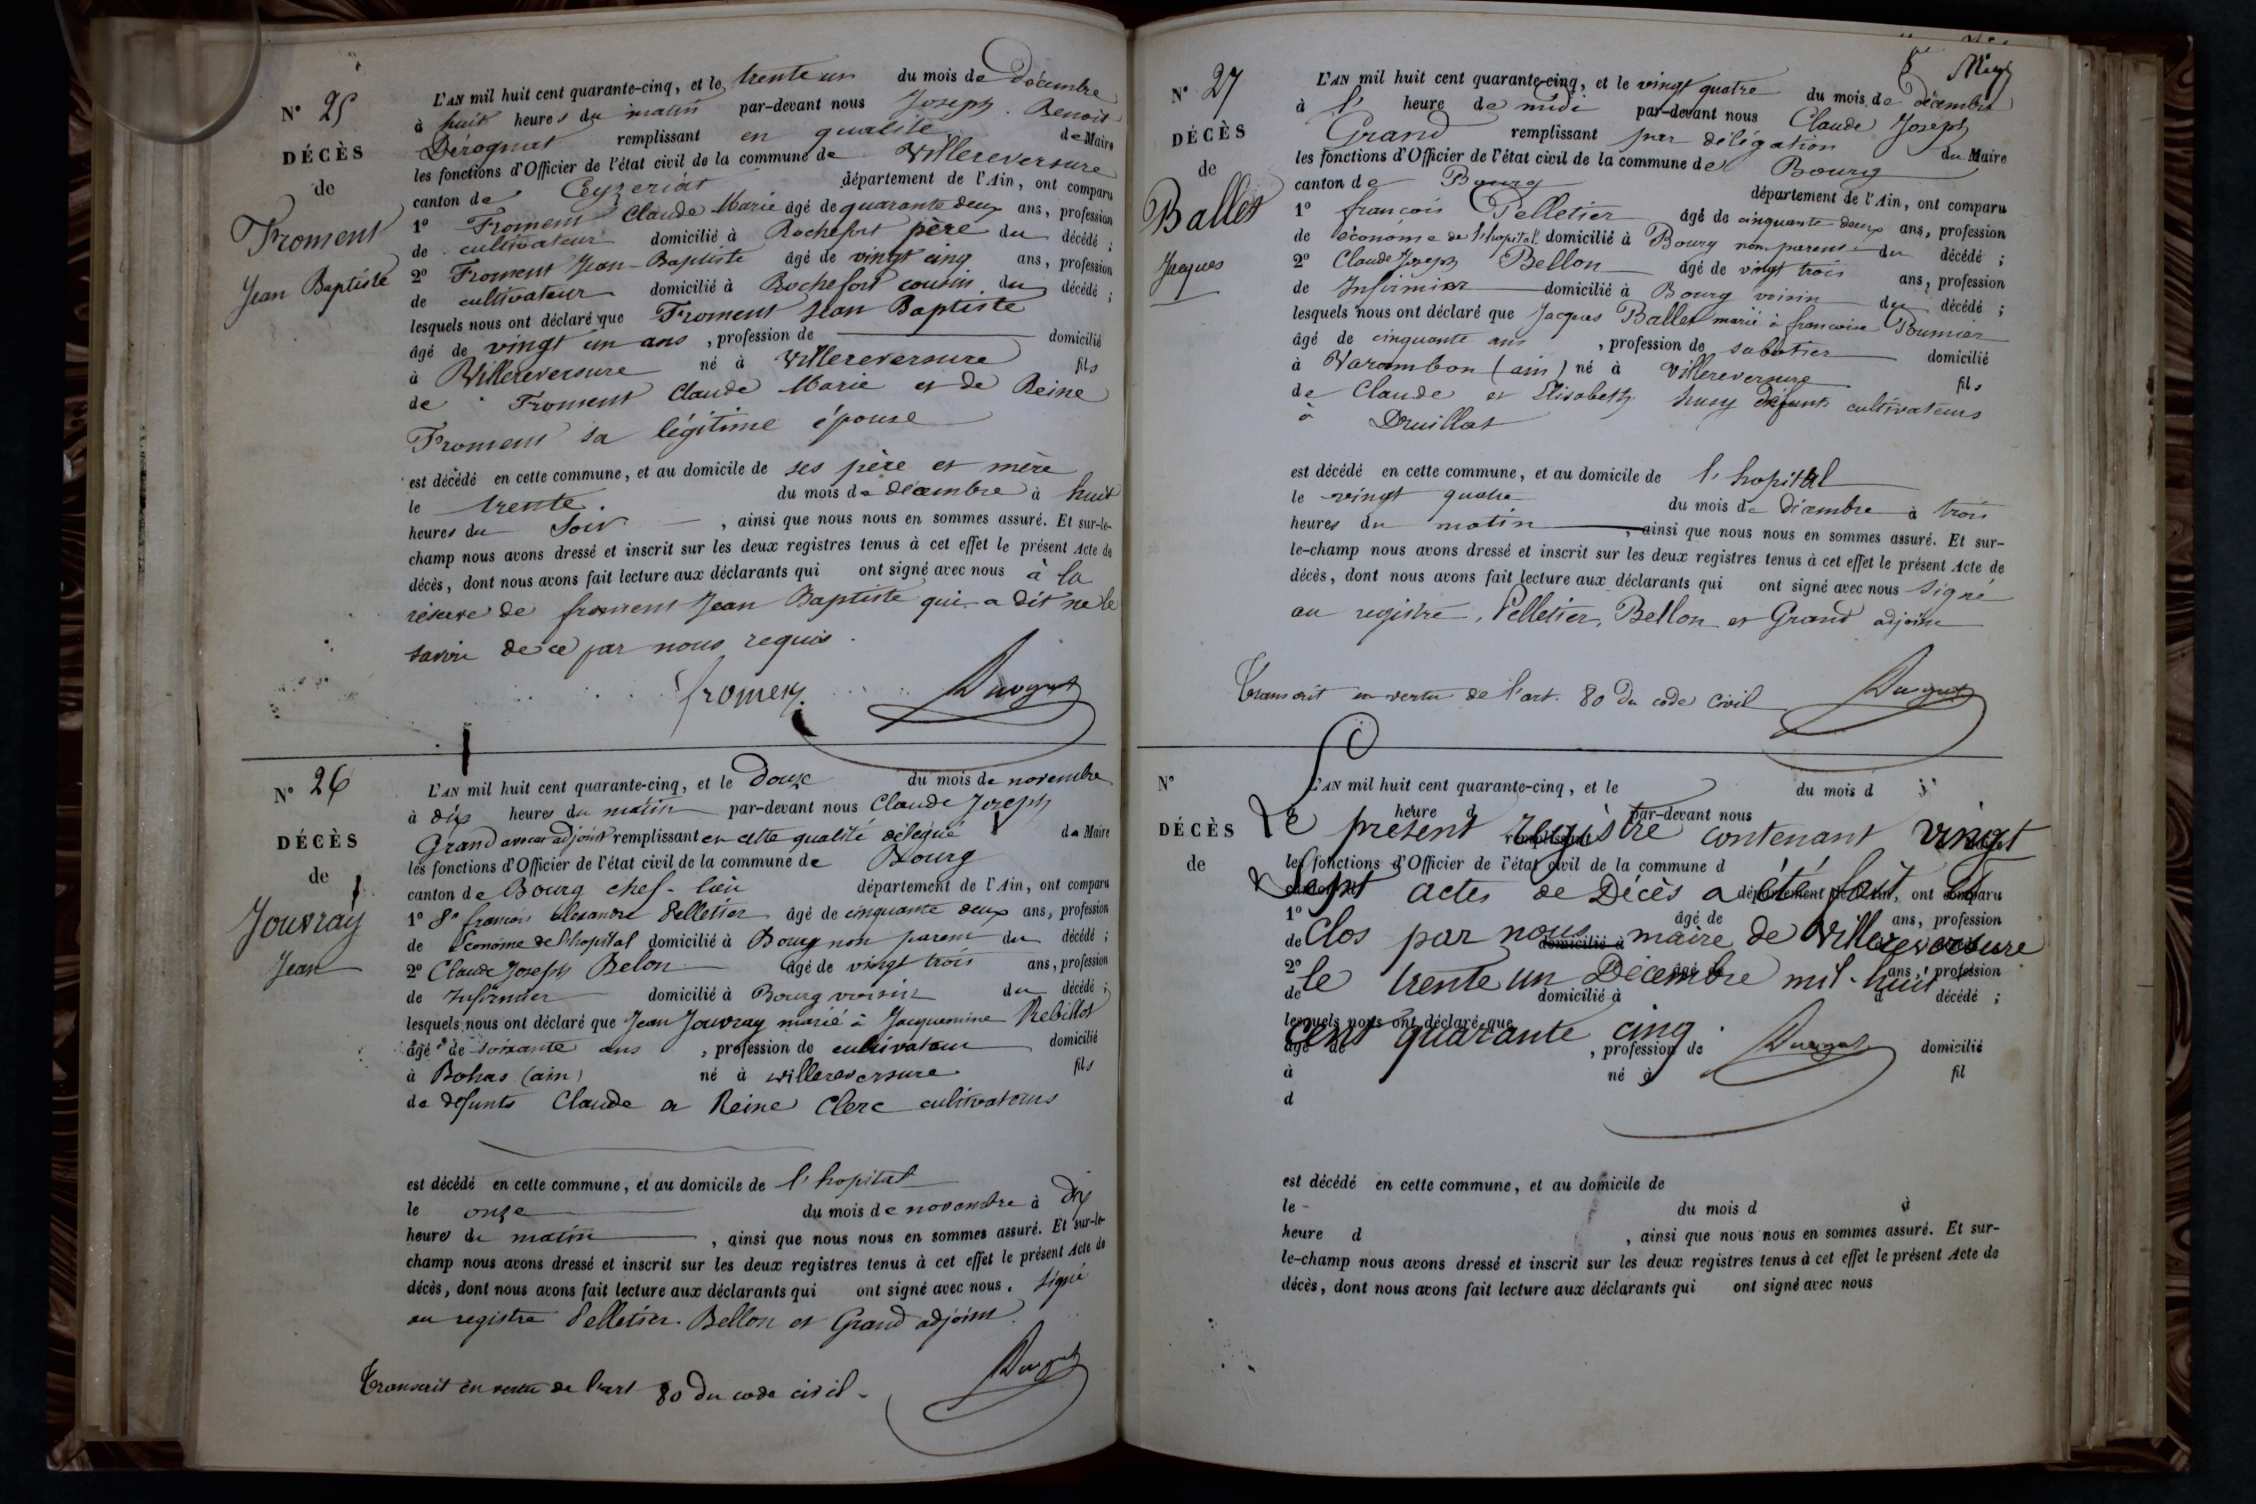 N° 25
DÉCÈS
de
Froment
Jean Baptiste
L'AN mil huit cent quarante-cinq, et le trente un du mois de Décembre
à huit heures du matin par-devant nous Joseph Benoit
Dérognat remplissant en qualité de Maire
les fonctions d'Officier de l'état civil de la commune de Villereversure
canton de Ceyzeriat département de l'Ain, ont comparu
1° Froment Claude Marie âgé de quarante deux ans, profession
de cultivateur domicilié à Rochefort père du décédé ;
2° Froment Jean-Baptiste âgé de vingt cinq ans, profession
de cultivateur domicilié à Rochefort cousin du décédé ;
lesquels nous ont déclaré que Froment Jean Baptiste
âgé de vingt un ans , profession de domicilié
à Villereversure né à Villereversure fils
de Froment Claude Marie et de Reine
Froment sa légitime épouse
est décédé en cette commune, et au domicile de ses père et mère
le trente. du mois de décembre à huit
heures du Soir , ainsi que nous nous en sommes assuré. Et sur-le-
champ nous avons dressé et inscrit sur les deux registres tenus à cet effet le présent Acte de
décès, dont nous avons fait lecture aux déclarants qui ont signé avec nous à la
réserve de froment Jean Baptiste qui a dit ne le
savoir de ce par nous requis.
froment
N° 26
DÉCÈS
de
Jouvray
Jean
L'AN mil huit cent quarante-cinq, et le Douze du mois de novembre
à dix heures du matin par-devant nous Claude Joseph
Grand adjoint remplissant en cette qualité délégué de Maire
les fonctions d'Officier de l'état civil de la commune de Bourg
canton de Bourg chef-lieu département de l'Ain, ont comparu
1° françois alexandre Pelletier âgé de cinquante deux ans, profession
de Econome de l'hopital domicilié à Bourg non parent du décédé ;
2° Claude Joseph Belon âgé de vingt trois ans, profession
de Infirmier domicilié à Bourg voisin du décédé ;
lesquels nous ont déclaré que Jean Jouvray marié à Jacquemine Rebillot
âgé de soixante ans , profession de cultivateur domicilié
à Bohas (ain) né à willereversure fils
de défunts Claude et Reine Clerc cultivateurs
est décédé en cette commune, et au domicile de l'hopital
le onze du mois de novembre à dix
heures du matin , ainsi que nous nous en sommes assuré. Et sur-le-
champ nous avons dressé et inscrit sur les deux registres tenus à cet effet le présent Acte de
décès, dont nous avons fait lecture aux déclarants qui ont signé avec nous. Signé
au registre Pelletier. Bellon et Grand adjoint.
Transcrit en vertu de l'art 80 du code civil
N° 27
DÉCÈS
de
Ballet
Jacques
L'AN mil huit cent quarante-cinq, et le vingt quatre du mois de décembre
à l' heure de midi par-devant nous Claude Joseph
Grand remplissant par délégation du Maire
les fonctions d'Officier de l'état civil de la commune de Bourg
canton de Bourg département de l'Ain, ont comparu
1° françois Pelletier âgé de cinquante deux ans, profession
de économe de l'hopital domicilié à Bourg non parent du décédé ;
2° Claude Joseph Bellon âgé de vingt trois ans, profession
de Infirmier domicilié à Bourg voisin du décédé ;
lesquels nous ont déclaré que Jacques Ballet marié à francoise
âgé de cinquante ans , profession de sabotier domicilié
à Varambon (ain) né à Villereversure fils
de Claude et Elisabeth défunts cultivateurs
à Druillat
est décédé en cette commune, et au domicile de l'hopital
le vingt quatre du mois de décembre à trois
heures du matin , ainsi que nous nous en sommes assuré. Et sur-
le-champ nous avons dressé et inscrit sur les deux registres tenus à cet effet le présent Acte de
décès, dont nous avons fait lecture aux déclarants qui ont signé avec nous Signé
au registre, Pelletier, Bellon et Grand adjoint
Transcrit en vertu de l'art. 80 du code Civil
N°
DÉCÈS
de
L'AN mil huit cent quarante-cinq, et le du mois d
heure d par-devant nous
Le présent registre contenant vingt
remplissant
les fonctions d'Officier de l'état civil de la commune d
Sept actes de Décès a été fait et
département de l'Ain, ont comparu
1° âgé de ans, profession
de Clos par nous maire de Villereversure
domicilié à
2° âgé de ans, profession
le trente un Décembre mil-huit
de domicilié à d décédé ;
lesquels nous ont déclaré que
cent quarante cinq.
âgé de , profession de domicilié
à né à fil
d
est décédé en cette commune, et au domicile de
le du mois d à
heure d , ainsi que nous nous en sommes assuré. Et sur-
le-champ nous avons dressé et inscrit sur les deux registres tenus à cet effet le présent Acte de
décès, dont nous avons fait lecture aux déclarants qui ont signé avec nous